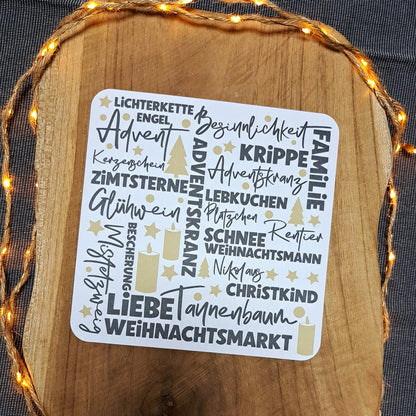 LiCHTERKETTE
ENGEL
Advent
Kerzenschein
ZiMTSTERNE
Glühwein
Mistelzweig
BESCHERUNG
ADVENTSKRANZ
Besinnlichkeit
KRiPPE
Adventskranz
LEBKUCHEN
Plätzchen
SCHNEE
WEiHNACHTSMANN
Nikolaus
CHRiSTKiND
FAMiLiE
Rentier
LiEBE Tannenbaum
WEiHNACHTSMARKT